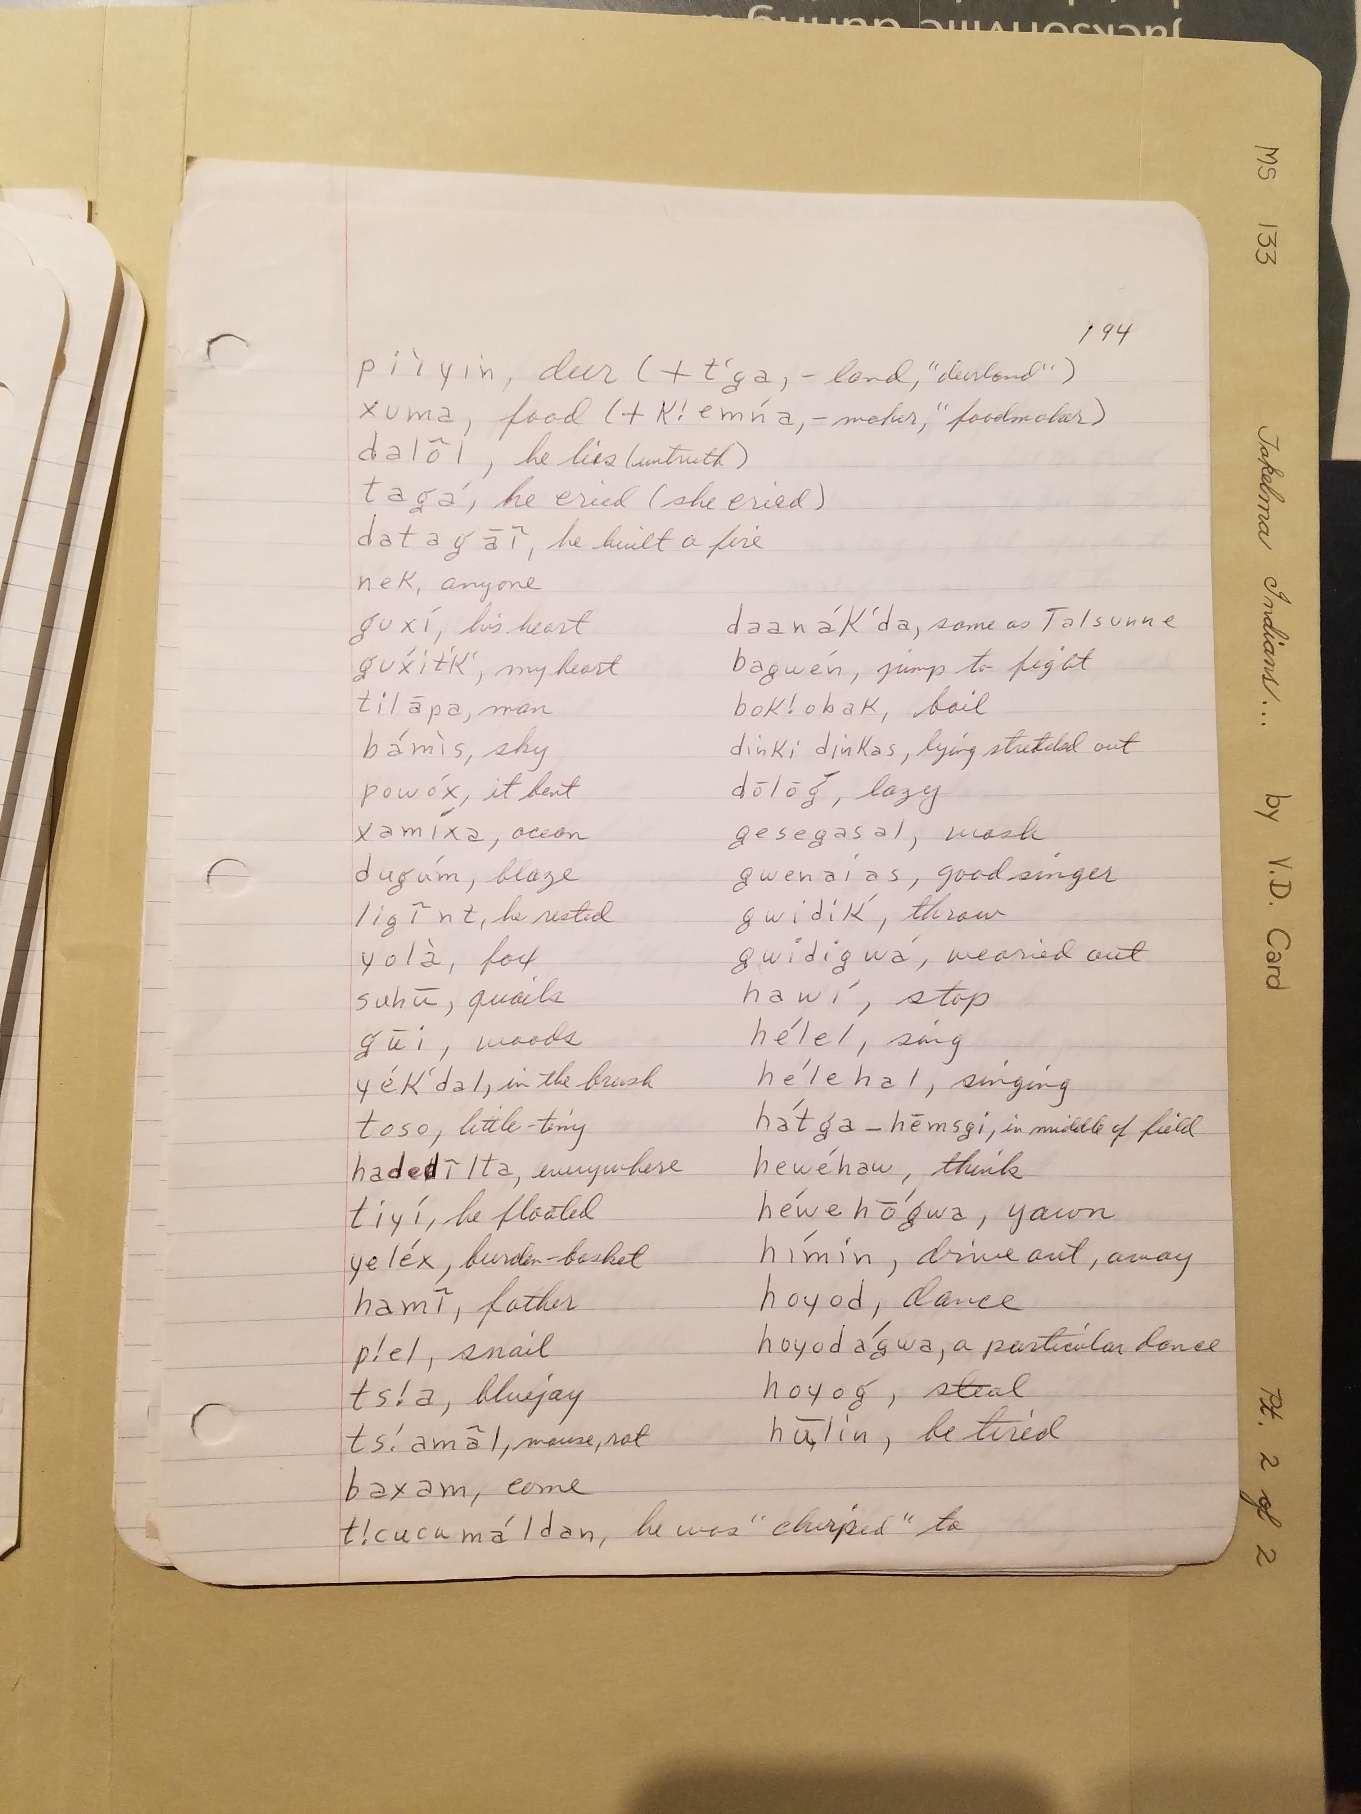 Jacksonville during
194
pìyin, deer (+ t'ga, - land, "deerland")
xuma, food (+ K!emńa, - maker, "foodmaker)
dalõl, he lies (untruth)
tagá, he cried (she cried)
datagāĩ, he built a fire
neK, anyone
guxí, his heart
gúxitḰ, my heart
tilāpa, man
bámìs, sky
powóx, it bent
xamíxa, ocean
dugúm, blaze
ligĩnt, he rested
yolà, fox
suhū, quails
gūi, woods
yéK'dal, in the brush
toso, little-tiny
hadedĩlta, everywhere
tiyí, he floated
yeléx, burden-basket
hamĩ, father
p!el, snail
ts!a, bluejay
ts!amãl, mouse, rat
baxam, come
t!cucumáldan, he was "chirped" to
daanáK'da, same as Talsunne
bagwén, jump to fight
boK!obaK, boil
dinKi dinKas, lying stretched out
dōlōg̃, lazy
gesegasal, wash
gwenaias, good singer
gwidiḰ, throw
gwidigwá, wearied out
hawí, stop
hélel, sing
hélehal, singing
hátga - hēmsgi, in middle of field
hewéhaw, think
héwehōǵwa, yawn
hímín, drive out, away
hoyod, dance
hoyodágwa, a particular dance
hoyoǵ, steal
hūlín, be tired
MS 133 Takelma Indians... by V.D. Card Pt. 2 of 2